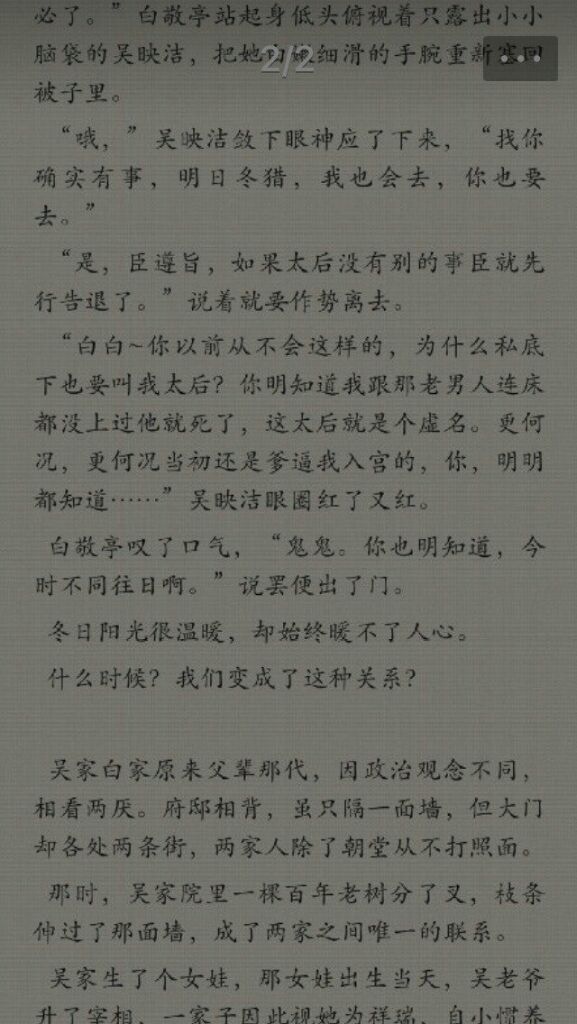 必了。”白敬亭站起身低头俯视着只露出小小
脑袋的吴映洁，把她的嫩细滑的手腕重新塞回
2/2
被子里。
“哦，”吴映洁敛下眼神应了下来，“找你
确实有事，明日冬猎，我也会去，你也要
去。”
“是，臣遵旨，如果太后没有别的事臣就先
行告退了。”说着就要作势离去。
“白白~你以前从不会这样的，为什么私底
下也要叫我太后？你明知道我跟那老男人连床
都没上过他就死了，这太后就是个虚名。更何
况，更何况当初还是爹逼我入宫的，你，明明
都知道……”吴映洁眼圈红了又红。
白敬亭叹了口气，“鬼鬼。你也明知道，今
时不同往日啊。”说罢便出了门。
冬日阳光很温暖，却始终暖不了人心。
什么时候？我们变成了这种关系？
吴家白家原来父辈那代，因政治观念不同，
相看两厌。府邸相背，虽只隔一面墙，但大门
却各处两条街，两家人除了朝堂从不打照面。
那时，吴家院里一棵百年老树分了叉，枝条
伸过了那面墙，成了两家之间唯一的联系。
吴家生了个女娃，那女娃出生当天，吴老爷
升了宰相，一家子因此视她为祥瑞，自小惯养